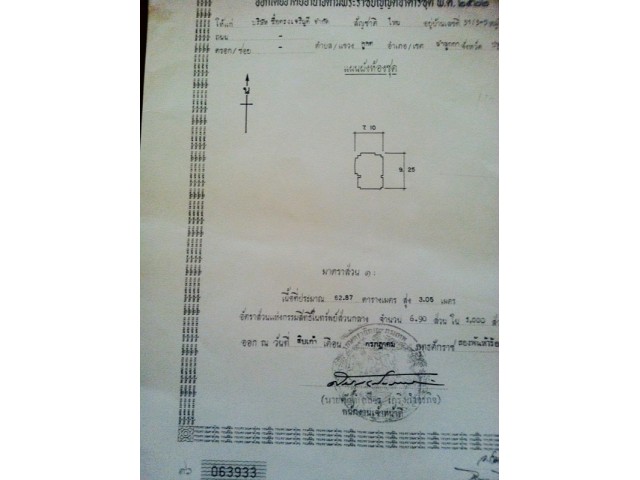 ออกโดยอาศัยอำนาจตามพระราชบัญญัติอาคารชุด พ.ศ. ๒๕๒๒
ให้แก่ บริษัท จำกัด สัญชาติ ไทย อยู่บ้านเลขที่
ถนน -
ตรอก/ซอย - ตำบล/แขวง คูคต อำเภอ/เขต ลำลูกกา จังหวัด
แผนผังห้องชุด
น
7.10
9.25
มาตราส่วน ๑:
เนื้อที่ประมาณ 62.87 ตารางเมตร สูง 3.05 เมตร
อัตราส่วนแห่งกรรมสิทธิ์ในทรัพย์ส่วนกลาง จำนวน 6.90 ส่วน ใน 1,000
ออก ณ วันที่ สิบเก้า เดือน กรกฎาคม พุทธศักราช
พนักงานเจ้าหน้าที่
063933